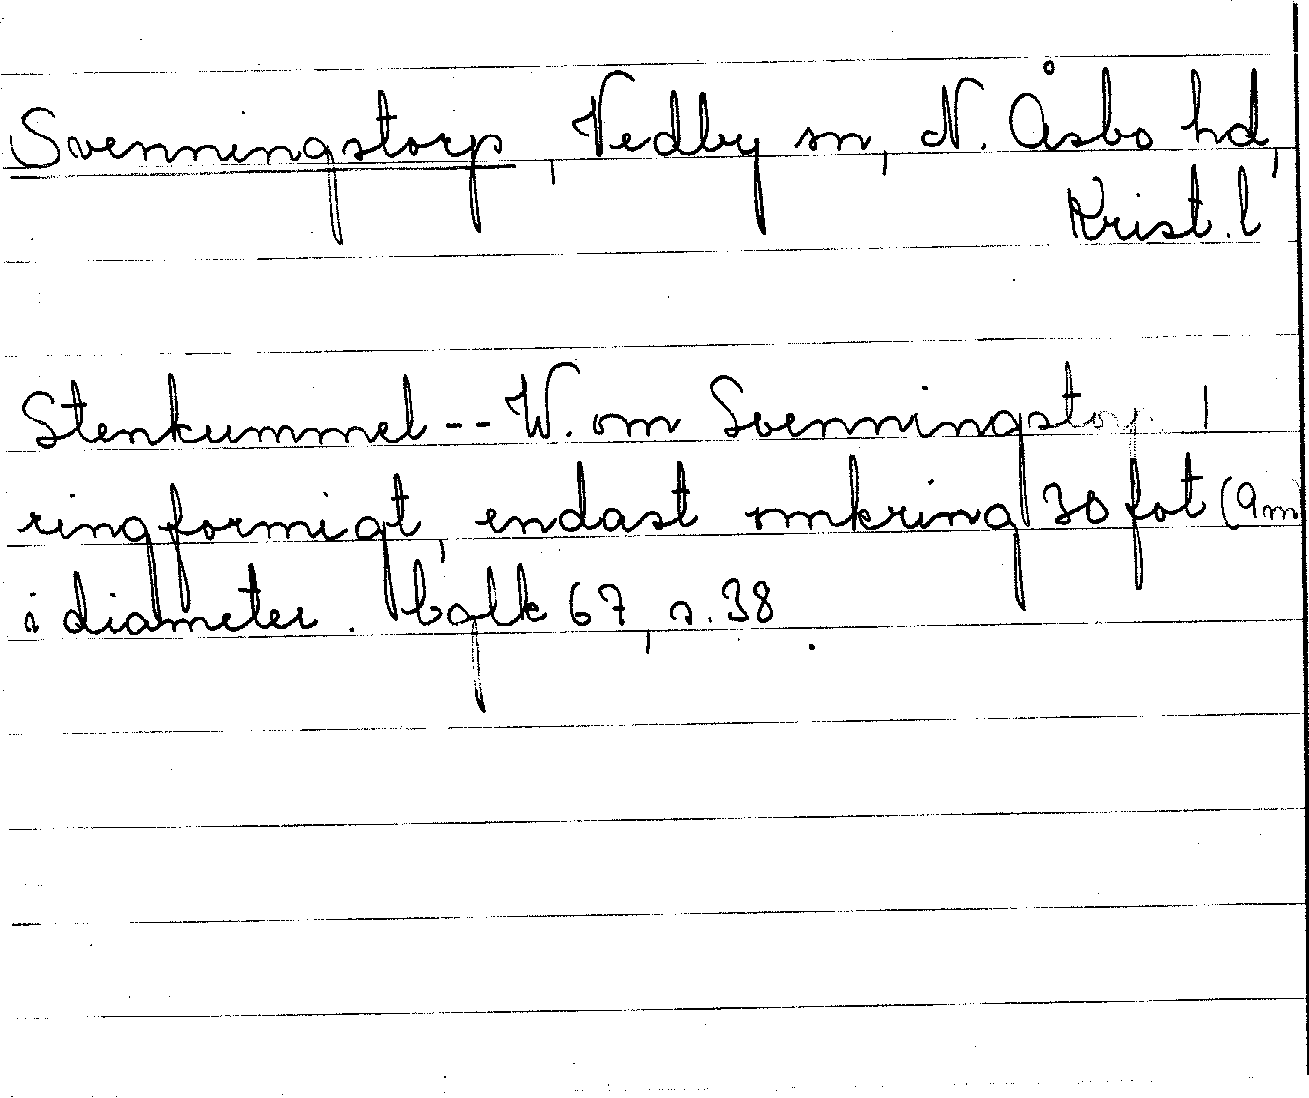 Svenningstorp, Vedby sn, N. Åsbo hd,
Krist. l
Stenkummel -- W. om Svenningstorp. 1
ringformigt, endast omkring 30 fot (9m)
i diameter. 67, s. 38